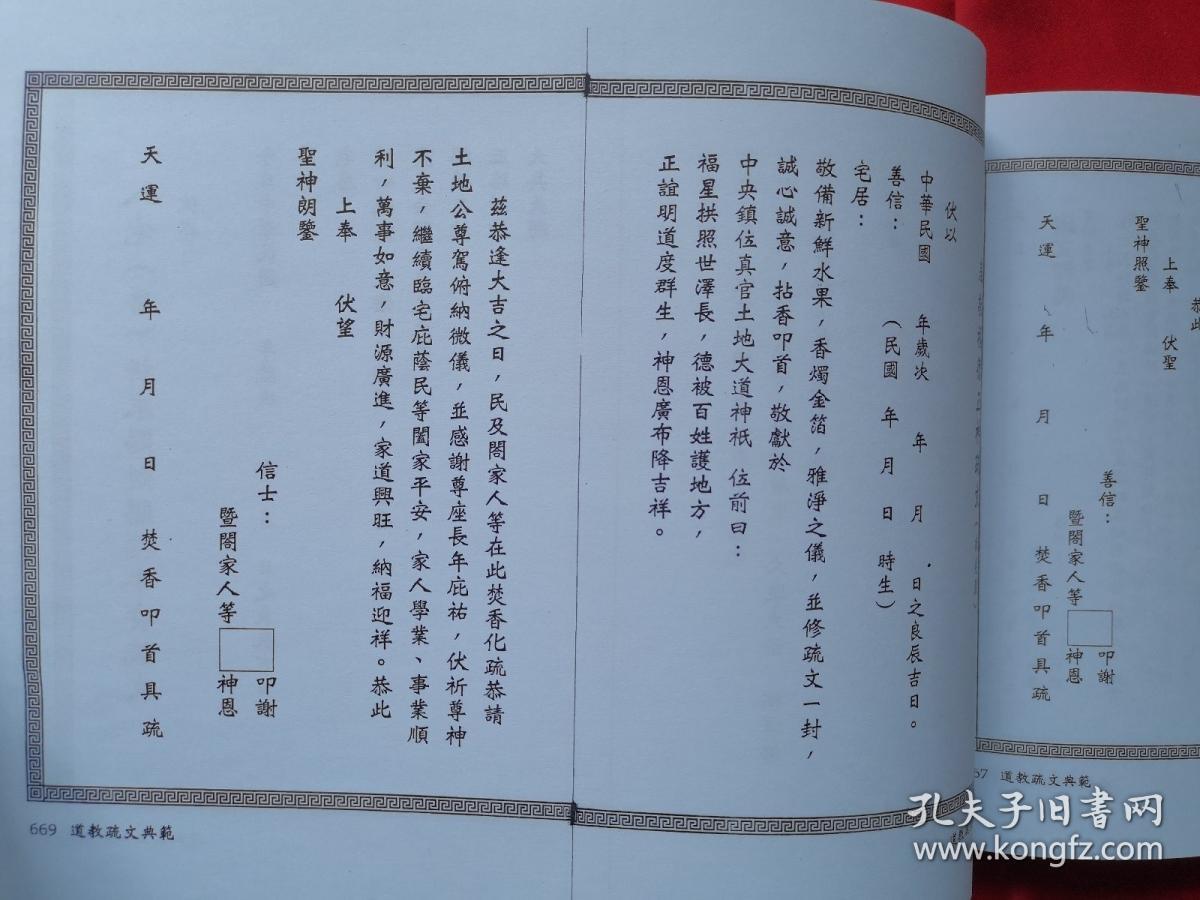 伏以
中華民國 年歲次 年 月 日之良辰吉日。
善信： （民國 年 月 日 時生）
宅居：
敬備新鮮水果，香燭金箔，雅淨之儀，並修疏文一封，
誠心誠意，拈香叩首，敬獻於
中央鎮位真官土地大道神祇 位前曰：
福星拱照世澤長，德被百姓護地方，
正誼明道度群生，神恩廣布降吉祥。
茲恭逢大吉之日，民及閤家人等在此焚香化疏恭請
土地公尊駕俯納微儀，並感謝尊座長年庇祐，伏祈尊神
不棄，繼續臨宅庇蔭民等闔家平安，家人學業、事業順
利，萬事如意，財源廣進，家道興旺，納福迎祥。恭此
上奉 伏望
聖神朗鑒
信士： 叩謝
暨閤家人等 神恩
天運 年 月 日 焚香叩首具疏
669 道教疏文典範
恭此
上奉 伏聖
聖神照鑒
善信： 叩謝
暨閤家人等 神恩
天運 年 月 日 焚香叩首具疏
67 道教疏文典範
孔夫子旧書网
www.kongfz.com